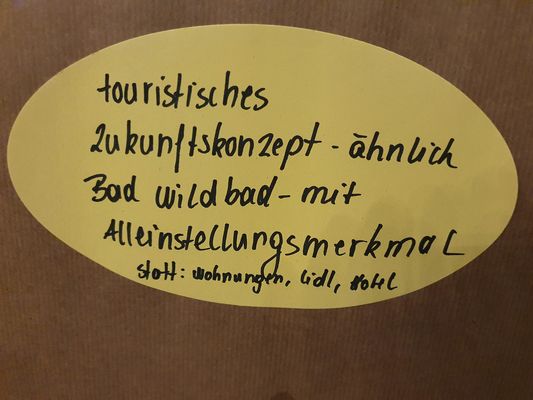 touristisches
Zukunftskonzept - ähnlich
Bad Wildbad - mit
Alleinstellungsmerkmal
statt: Wohnungen, Lidl, Hotel